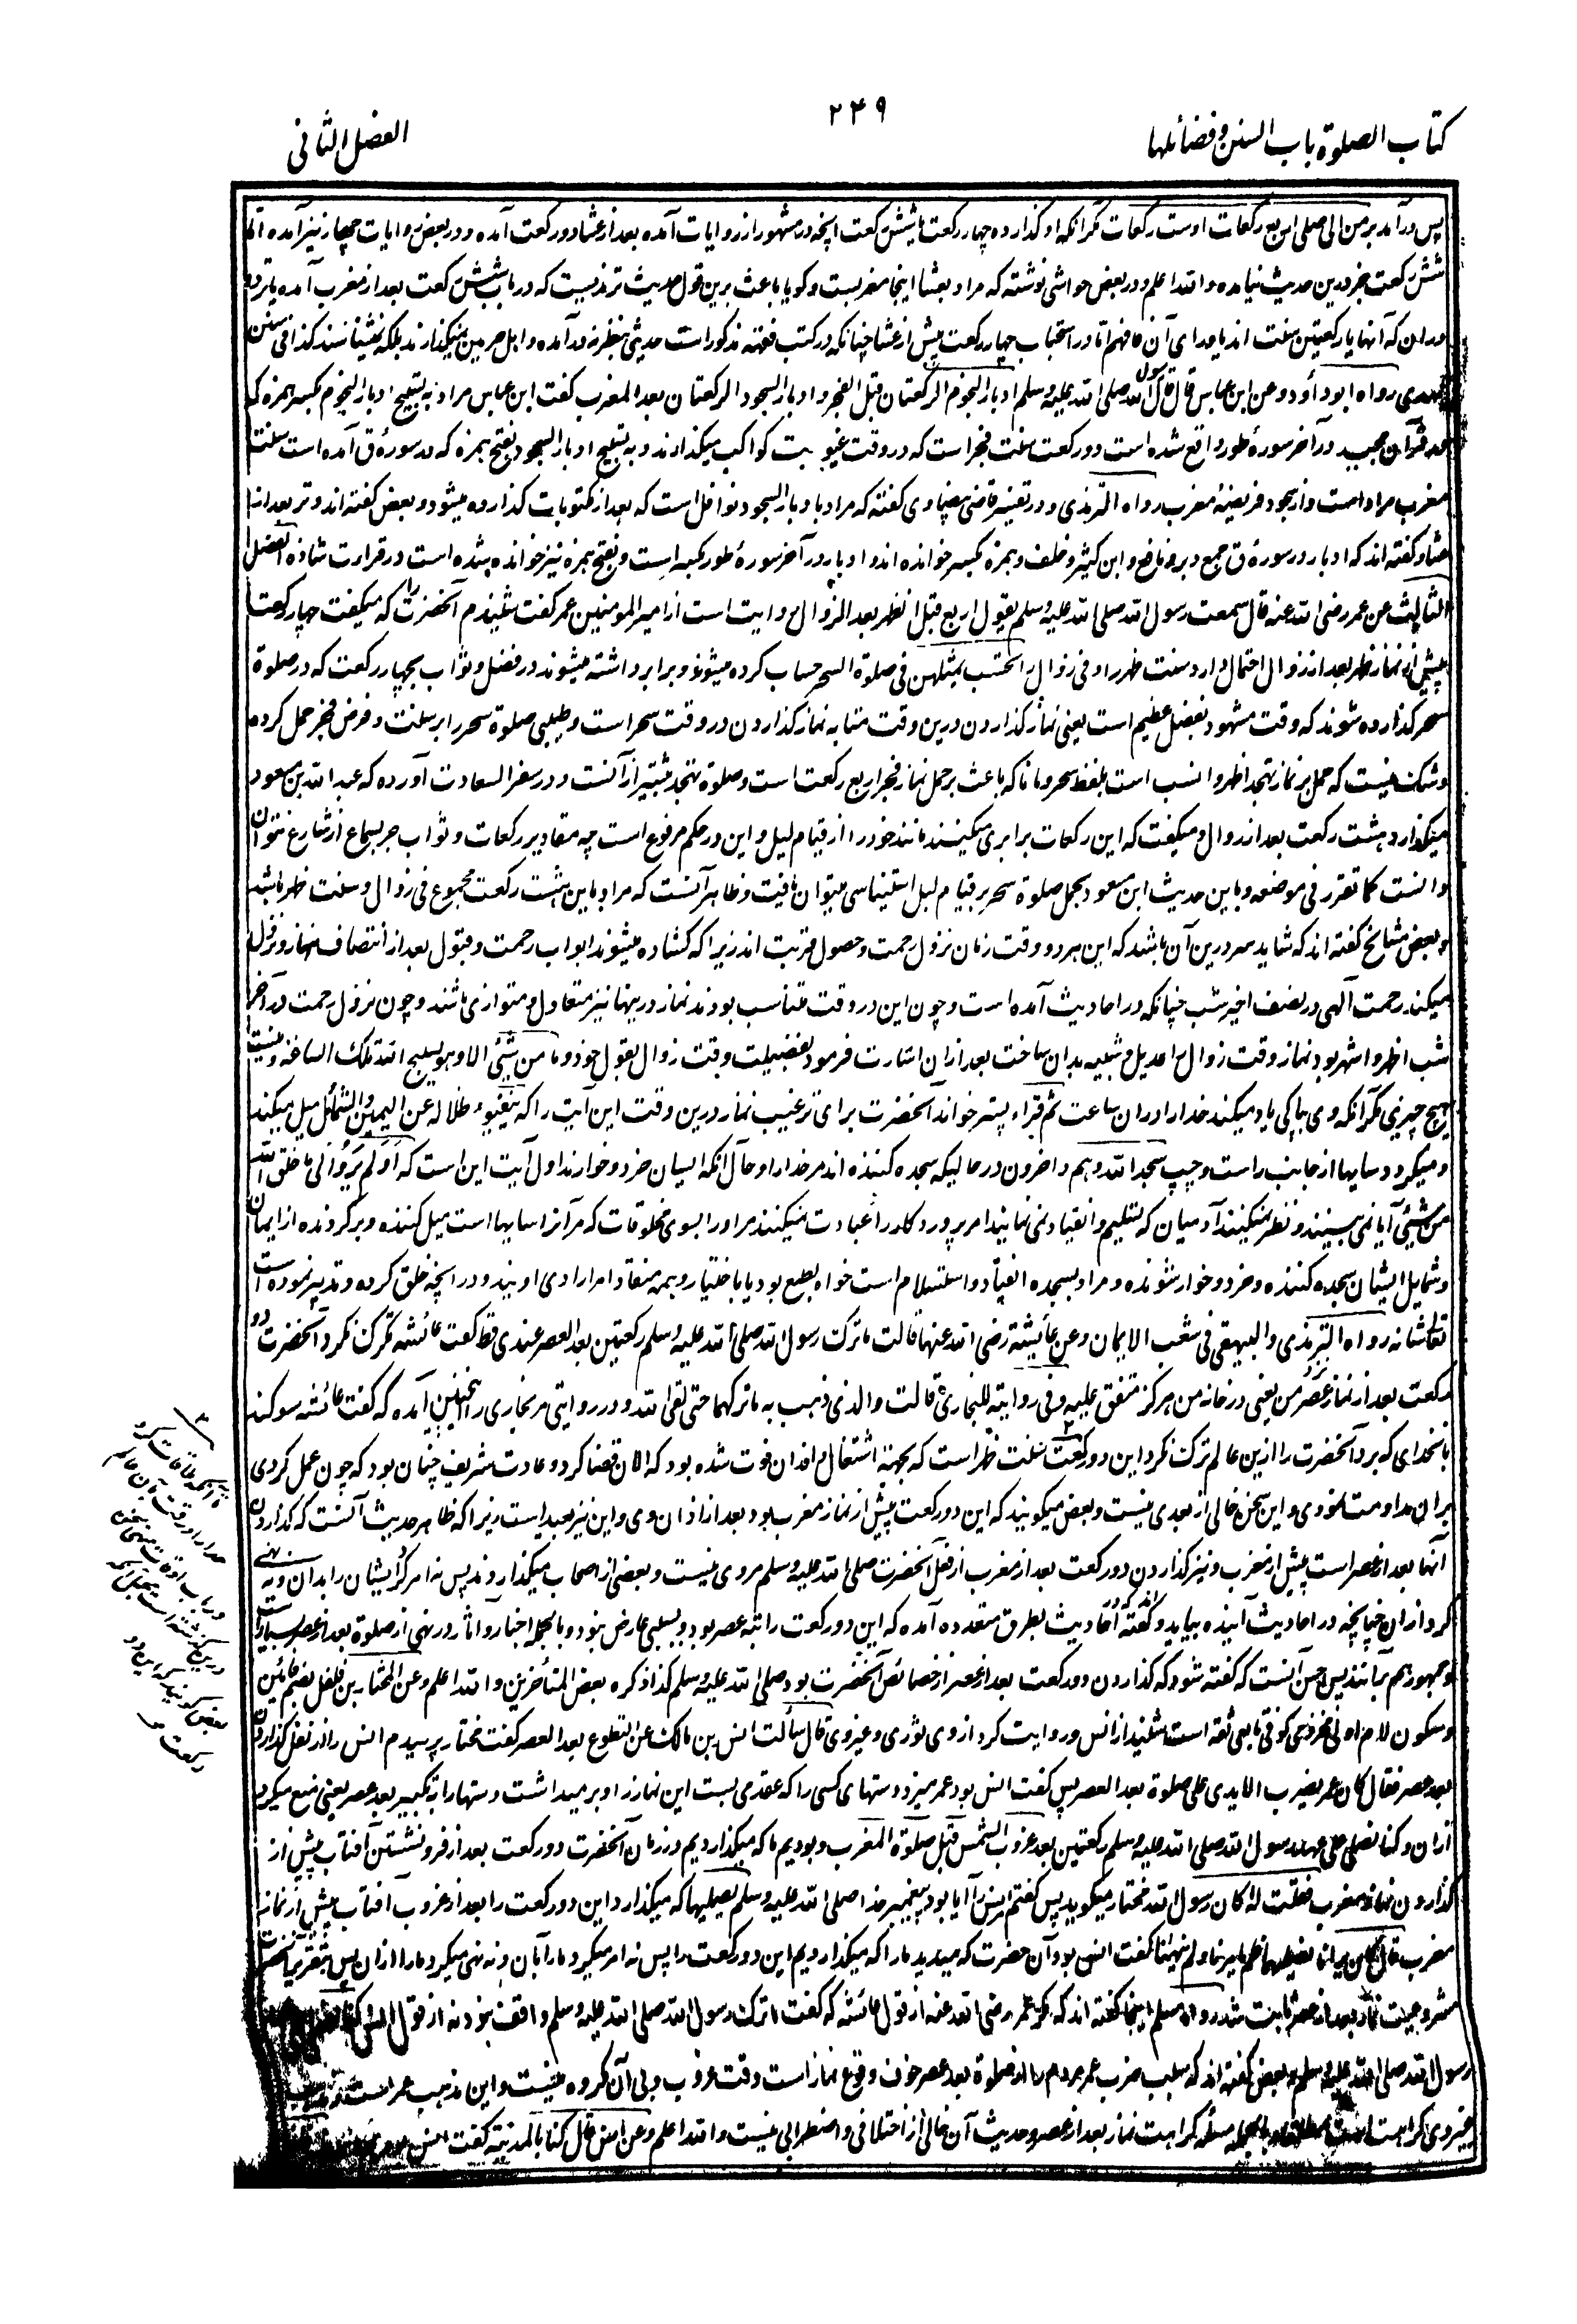 كتاب الصلوة باب السنن وفضائلها
۲۴۹
الفصل الثانی
پس درآمد بر من الی صلی اربع رکعات اوست رکعات مگر آنکه او گذارده چهار رکعت یا شش رکعت آنچه در مشهور از روایات آمده بعد از عشا دو رکعت آمده و در بعض روایات چهار نیز آمده اما
شش رکعت جز درین حدیث نیامده و الله اعلم و در بعض حواشی نوشته که مراد بعشا اینجا مغربست و گویا باعث برین قول حدیث ترمذیست که در باب شش رکعت بعد از مغرب آمده با تردد
دران که آنها با رکعتین سنت اند یا ورای آن فافهم اما در استحباب چهار رکعت پیش از عشا چنانکه در کتب فقه مذکور است حدیثی بنظر نه درآمده و اهل حرمین نمیگذارند بلکه نمی شناسند کذا فی سنن
الهدی رواه ابوداؤد وعن ابن عباس قال قال رسول الله صلی الله علیه وسلم ادبار النجوم الرکعتان قبل الفجر وادبار السجود الرکعتان بعد المغرب گفت ابن عباس مراد به تسبیح ادبار النجوم بکسر همزه که
در قرآن مجید در آخر سورهٔ طور واقع شده است دو رکعت سنت فجر است که در وقت غیوبت کواکب میگذارند و به تسبیح ادبار السجود بفتح همزه که در سورهٔ ق آمده است سنت
مغرب مراد است و از سجود فریضهٔ مغرب رواه الترمذی و در تفسیر قاضی بیضاوی گفته که مراد بادبار السجود نوافل است که بعد از مکتوبات گذارده میشود و بعض گفته اند وتر بعد از
عشا و گفته اند که ادبار در سورهٔ ق جمع دبر و نافع و ابن کثیر و خلف و حمزه بکسر خوانده اند و ادبار در آخر سورهٔ طور بکسر است و بفتح همزه نیز خوانده شده است در قراءت شاذه الفصل
الثالث عن عمر رضی الله عنه قال سمعت رسول الله صلی الله علیه وسلم یقول اربع قبل الظهر بعد الزوال روایت است از امیر المومنین عمر گفت شنیدم آنحضرت را که میگفت چهار رکعت
پیش از نماز ظهر بعد از زوال احتمال دارد سنت ظهر را و فی زوال را تحتسب بمثلهن فی صلوة السحر حساب کرده میشوند و برابر داشته میشوند در فضل و ثواب بچهار رکعت که در صلوة
سحر گذارده شوند که وقت مشهود بفضل عظیم است یعنی نماز گذاردن درین وقت مثابه نماز گذاردن در وقت سحر است و طیبی صلوة سحر را بر سنت و فرض فجر حمل کرده
و شک نیست که حمل بر نماز تهجد اظهر و انسب است بلفظ سحر و مانا که باعث بر حمل نماز فجر اربع رکعت است و صلوة تهجد بیشتر از آنست و در سفر السعادت آورده که عبد الله بن مسعود
میگذارد هشت رکعت بعد از زوال و میگفت که این رکعات برابری میکنند مانند خود را از قیام لیل و این در حکم مرفوع است چه مقادیر رکعات و ثواب جز بسماع از شارع نتوان
دانست کما تقرر فی موضعه و باین حدیث ابن مسعود بحمل صلوة سحر بر قیام لیل استیناسی میتوان یافت و ظاهر آنست که مراد باین هشت رکعت مجموع فی زوال و سنت ظهر باشد
و بعض مشایخ گفته اند که شاید سر درین آن باشد که این هر دو وقت زمان نزول رحمت و حصول قربت اند زیرا که کشاده میشوند ابواب رحمت و قبول بعد از انتصاف نهار و نزول
میکند رحمت الهی در نصف اخیر شب چنانکه در احادیث آمده است و چون این دو وقت متناسب بودند نماز درینها نیز متعادل و متوازی باشند و چون نزول رحمت در آخر
شب اظهر و اشهر بود نماز وقت زوال را عدیل و شبیه بدان ساخت بعد ازان اشارت فرمود بفضیلت وقت زوال بقول خود وما من شئی الا وهو یسبح الله تلک الساعة و نیست
هیچ چیزی مگر آنکه وی بپاکی یاد میکند خدا را دران ساعت ثم قراء پستر خواند آنحضرت برای ترغیب نماز درین وقت این آیت را که یتفیؤ ظلاله عن الیمین والشمائل میل میکند
و میگردد سایها از جانب راست و چپ سجدا لله وهم داخرون در حالیکه سجده کننده اند مر خدا را و حال آنکه ایشان خرد و خوارند اول آیت این است که اولم یروا الی ما خلق الله
من شیٔ آیا نمی بینند و نظر نمیکنند آدمیان که تسلیم و انقیاد نمی نمایند امر پروردگار را عبادت نمیکنند مر او را بسوی مخلوقات که مر آنرا سایها است میل کننده و برگردنده از ایمان
و شمایل ایشان سجده کننده و خرد و خوار شونده و مراد بسجده انقیاد و استسلام است خواه بطبع بود یا باختیار و همه منقاد امر ارادی اویند و در آنچه خلق کرده و تدبیر نموده است
تعالی شانه رواه الترمذی والبیهقی فی شعب الایمان وعن عائشة رضی الله عنها قالت ما ترک رسول الله صلی الله علیه وسلم رکعتین بعد العصر عندی قط گفت عائشه ترک نکرد آنحضرت دو
رکعت بعد از نماز عصر نزد من یعنی در خانه من هرگز متفق علیه وفی روایة للبخاری قالت والذی ذهب به ما ترکهما حتی لقی الله و در روایتی مر بخاری را چنین آمده که گفت عائشه سوگند
بآنخدای که برد آنحضرت را ازین عالم ترک نکرد این دو رکعت سنت ظهر است که بجهة اشتغال وافدان فوت شده بود که الان قضا کرد و عادت شریف چنان بود که چون عمل کردی
بران مداومت نمودی و این سخن خالی از بعدی نیست و بعض میگویند که این دو رکعت پیش از نماز مغرب بود بعد از اذان وی و این نیز بعید است زیرا که ظاهر حدیث آنست که گذاردن
آنها بعد از عصر است پیش از مغرب و نیز گذاردن دو رکعت بعد از مغرب از فعل آنحضرت صلی الله علیه وسلم مروی نیست و بعضی از اصحاب میگذاردند پس نه امر کرد ایشان را بدان و نه نهی
کرد ازان چنانچه در احادیث آینده بیاید و گفته اند که در احادیث بطرق متعدده آمده که این دو رکعت راتبه عصر بود و بسببی عارض نبود و بالجمله اخبار و اثار در نهی از صلوة بعد از عصر بسیار است
و جمهور هم برآنند پس احسن آنست که گفته شود که گذاردن دو رکعت بعد از عصر از خصائص آنحضرت بود صلی الله علیه وسلم کذا ذکره بعض المتأخرین و الله اعلم وعن المختار بن فلفل بضم فائین
و سکون لام اولی مخزومی کوفی تابعی ثقه است شنید از انس و روایت کرد از وی ثوری و غیر وی قال سألت انس بن مالک عن التطوع بعد العصر گفت مختار پرسیدم انس را از نفل گذاردن
بعد عصر فقال کان عمر یضرب الایدی علی صلوة بعد العصر پس گفت انس بود عمر میزد دستهای کسی را که عقد می بست این نماز را و بر میداشت دستها را به تکبیر بعد عصر یعنی منع میکرد
ازان وکنا نصلی علی عهد رسول الله صلی الله علیه وسلم رکعتین بعد غروب الشمس قبل صلوة المغرب و بودیم ما که میگذاردیم در زمان آنحضرت دو رکعت بعد از فرو نشستن آفتاب پیش از
گذاردن نماز مغرب فقلت له اکان رسول الله مختار میگوید پس گفتم انس را آیا بود پیغمبر خدا صلی الله علیه وسلم یصلیهما که میگذارد این دو رکعت را بعد از غروب آفتاب پیش از نماز
مغرب قال کان یرانا نصلیهما فلم یامرنا ولم ینهنا گفت انس بود آن حضرت که میدید ما را که میگذاردیم این دو رکعت را پس نه امر میکرد ما را بآن و نه نهی میکرد ما را ازان پس بتقریر آنحضرت
مشروعیت نماز بعد از عصر ثابت شد رواه مسلم اینجا گفته اند که عمر رضی الله عنه از قول عائشه که گفت ما ترک رسول الله صلی الله علیه وسلم واقف نبود نه از قول انس
رسول الله صلی الله علیه وسلم و بعض گفته اند که سبب ضرب عمر مردم را از صلوة بعد عصر خوف وقوع نماز است وقت غروب و بی آن مکروه نیست و این مذهب عمر است
غیر وی کراهت است مسئله کراهت نماز بعد از عصر و حدیث آن خالی از اختلافی و اضطرابی نیست و الله اعلم وعن انس قال کنا بالمدینة گفت انس
رکعت